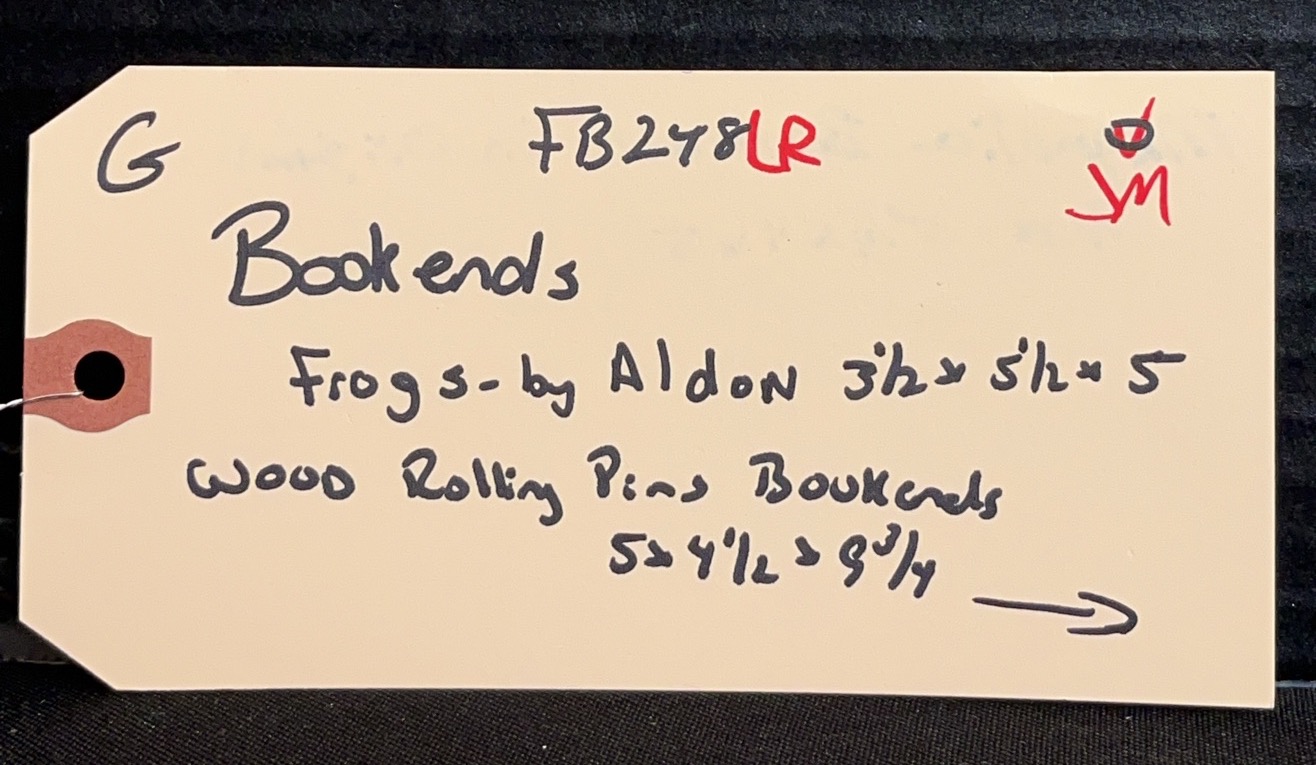 G FB248LR
JM
Bookends
Frogs - by Aldon 3 1/2 x 5 1/2 x 5
Wood Rolling Pins Bookends
5 x 4 1/2 x 9 3/4 →